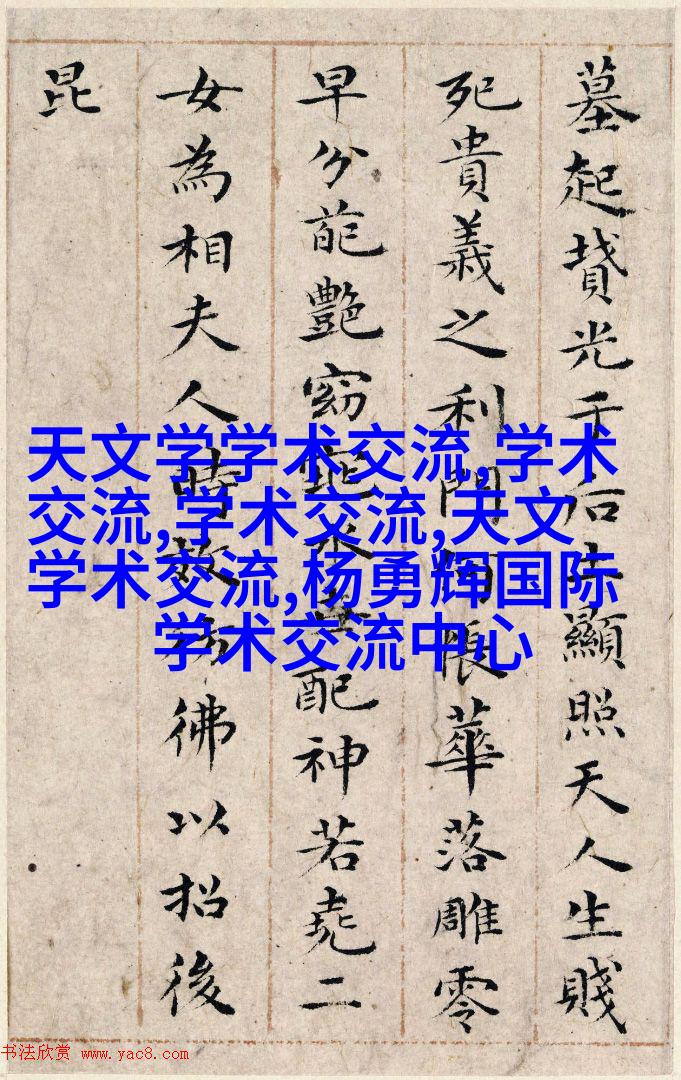 墓起墳光于后土顯照天人生賤
死貴義之利門何悵華落雕零
早分葩豔窈窕永世配神若堯二
女為相夫人時效彿以招後
昆
天文学学术交流,学术
交流,学术交流,天文
学术交流,杨勇辉国际
学术交流中心
书法欣赏 www.yac8.com